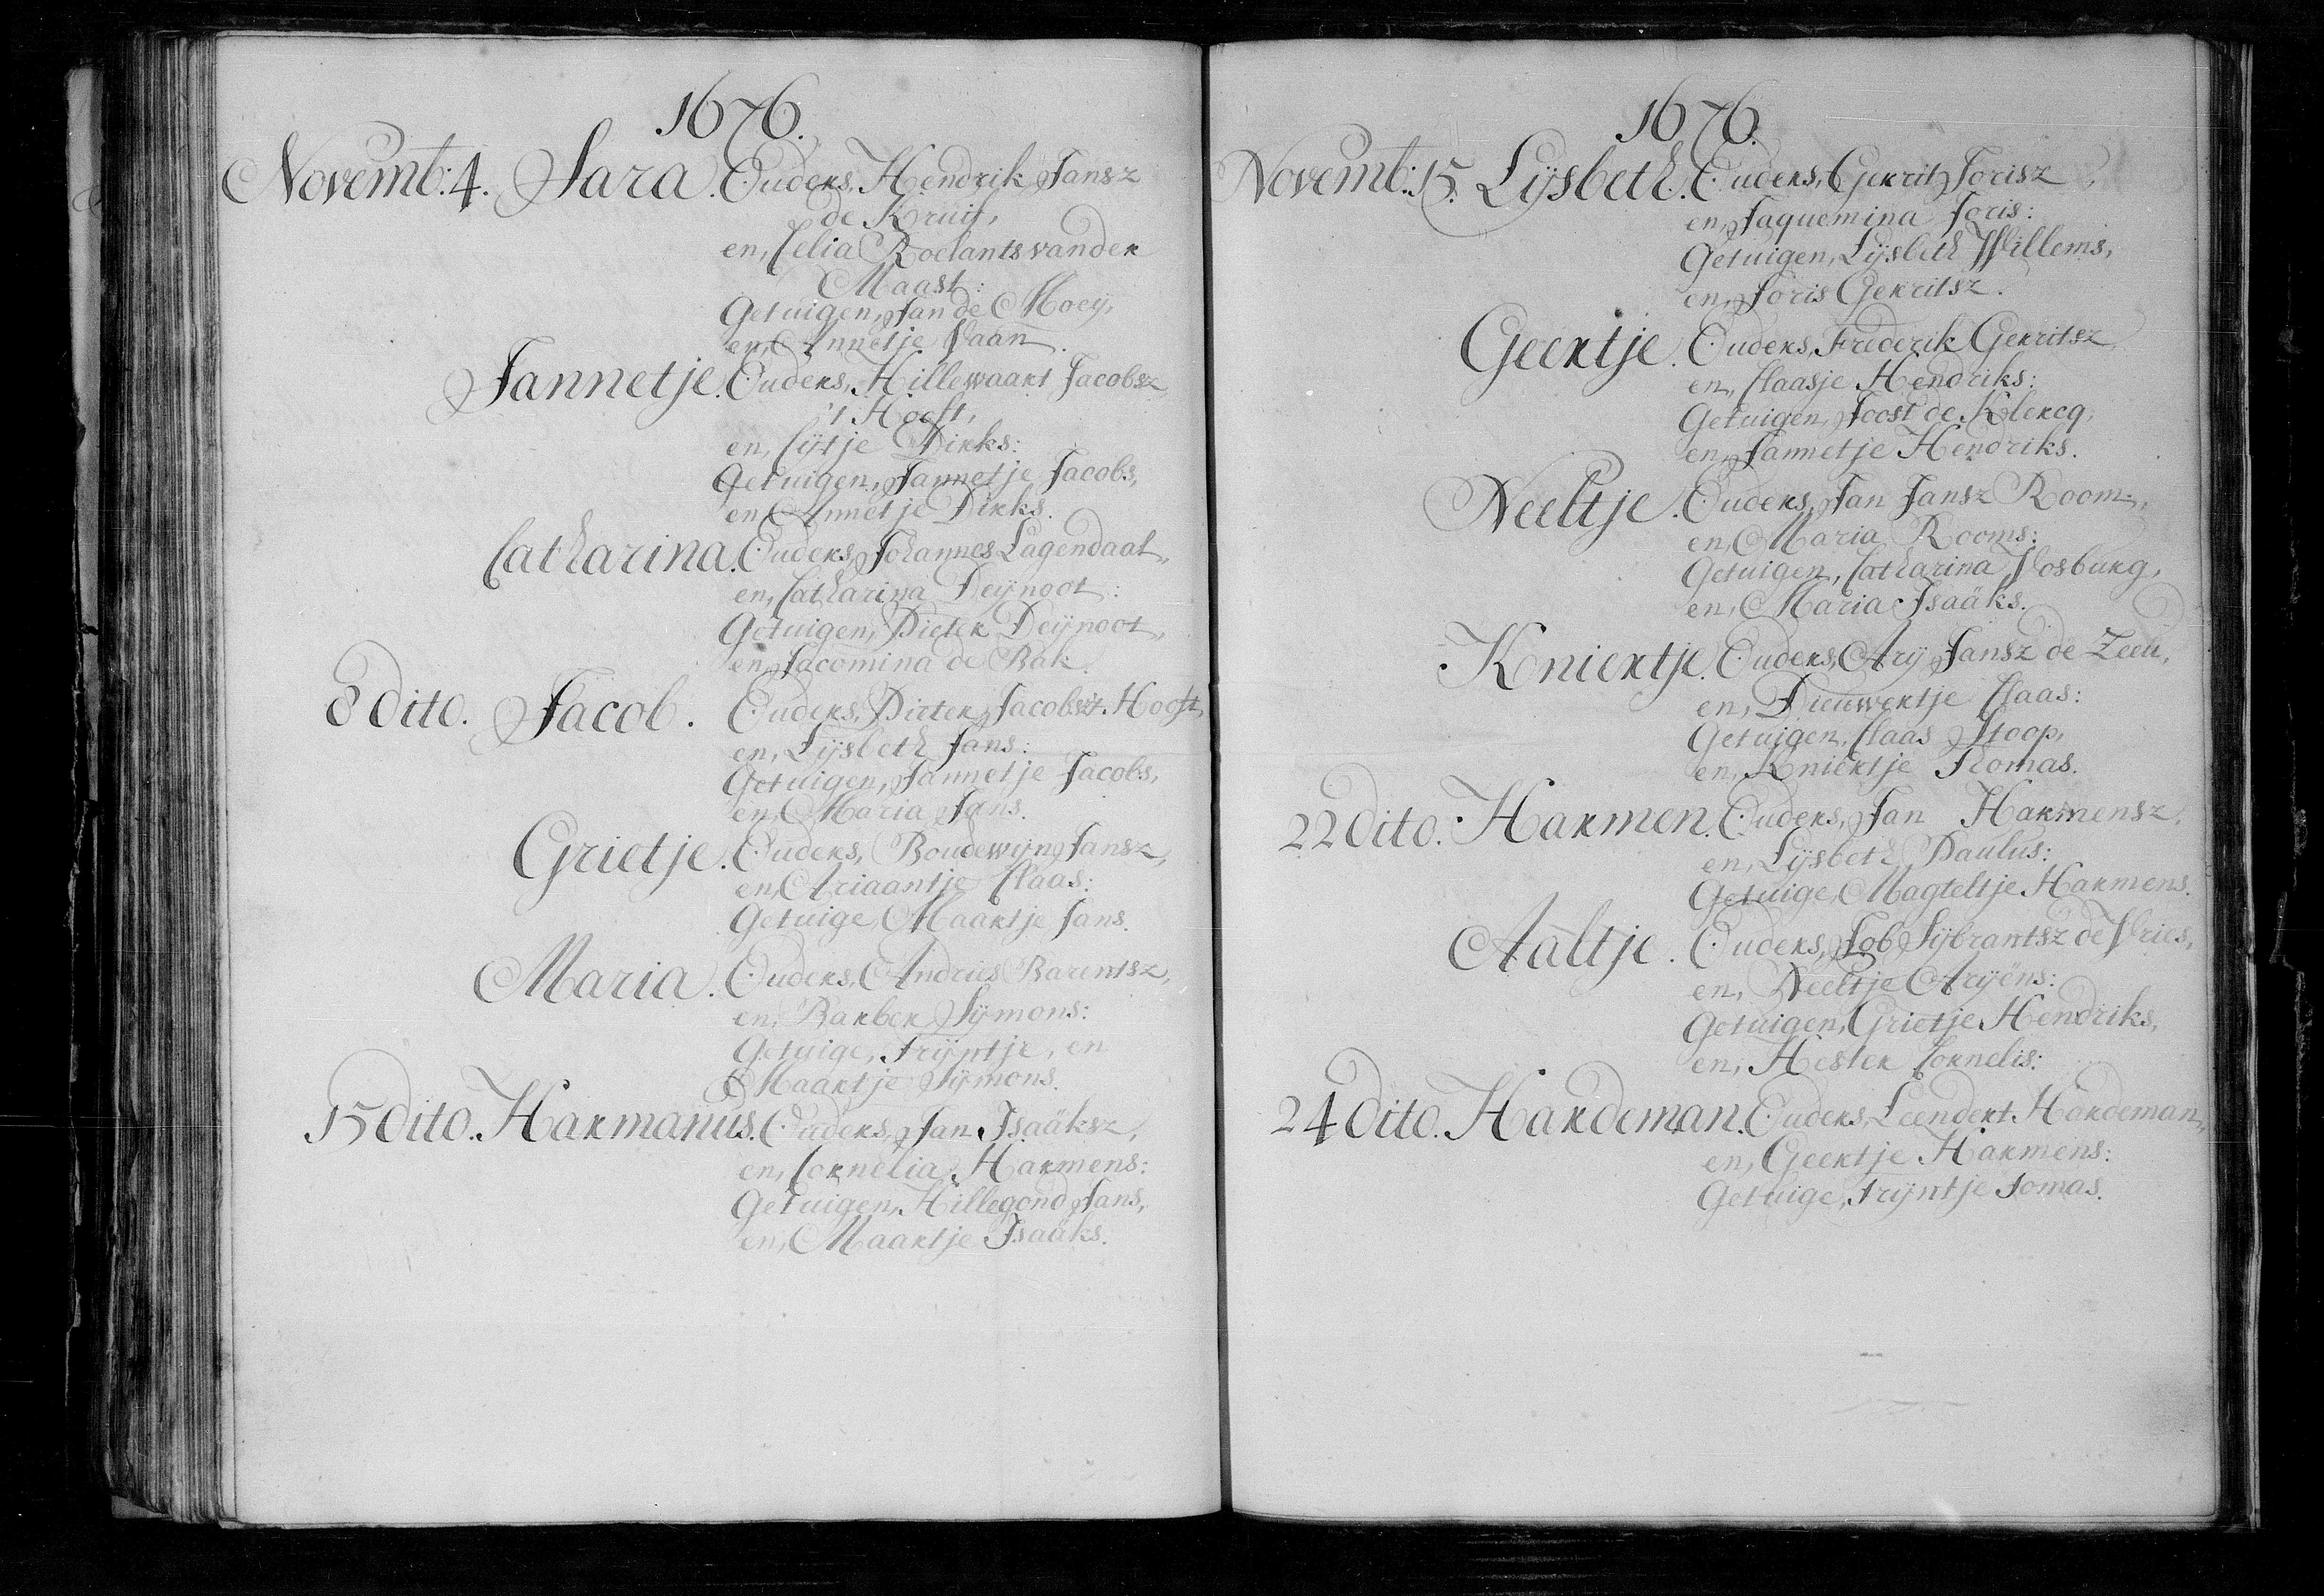 1676.
Novemb: 4. Sara. Ouders, Hendrik Jansz
de Kruif,
en, Celia Roelants vander
Maast:
Getuigen, Jan de Moeÿ,
en, Annetje Vaan.
Jannetje. Ouders, Hillewaart Jacobsz
't Hooft,
en, Cijtje Dirks:
Getuigen, Jannetje Jacobs,
en, Annetje Dirks.
Catharina. Ouders, Johannes Lagendaal,
en, Catharina Deÿnoot:
Getuigen, Pieter Deÿnoot,
en, Jacomina de Bak.
8 dito. Jacob. Ouders, Pieter Jacobsz 't Hooft,
en, Lijsbeth Jans:
Getuigen, Jannetje Jacobs,
en, Maria Jans.
Grietje. Ouders, Boudewijn Jansz,
en, Ariaantje Claas:
Getuige, Maartje Jans.
Maria. Ouders, Andries Barentsz,
en, Barber Sÿmons:
Getuige, Trijntje, en
Maartje Sÿmons.
15 dito. Harmanus. Ouders, Jan Isaäksz,
en, Cornelia Harmens:
Getuigen, Hillegond Jans,
en, Maartje Isaäks.
1676.
Novemb: 15. Lijsbeth. Ouders, Gerrit Jorisz,
en, Jaquemina Joris:
Getuigen, Lijsbeth Willems,
en, Joris Gerritsz.
Geertje. Ouders, Frederik Gerritsz
en, Claasje Hendriks:
Getuigen, Joost de Klercq,
en, Jannetje Hendriks.
Neeltje. Ouders, Jan Jansz Room,
en, Maria Rooms:
Getuigen, Catharina Vosburg,
en, Maria Isaäks.
Kniertje. Ouders, Arij Jansz de Zeeu,
en, Dieuwertje Claas:
Getuigen, Claas Stoop,
en, Kniertje Thomas.
22 dito. Harmen. Ouders, Jan Harmensz,
en, Lijsbeth Paulus:
Getuige, Magteltje Harmens.
Aaltje. Ouders, Job Sijbrantsz de Vries,
en, Neeltje Arijens:
Getuigen, Grietje Hendriks,
en, Hester Cornelis:
24 dito. Hardeman. Ouders, Leendert Hardeman,
en, Geertje Harmens:
Getuige, Trijntje Tomas.